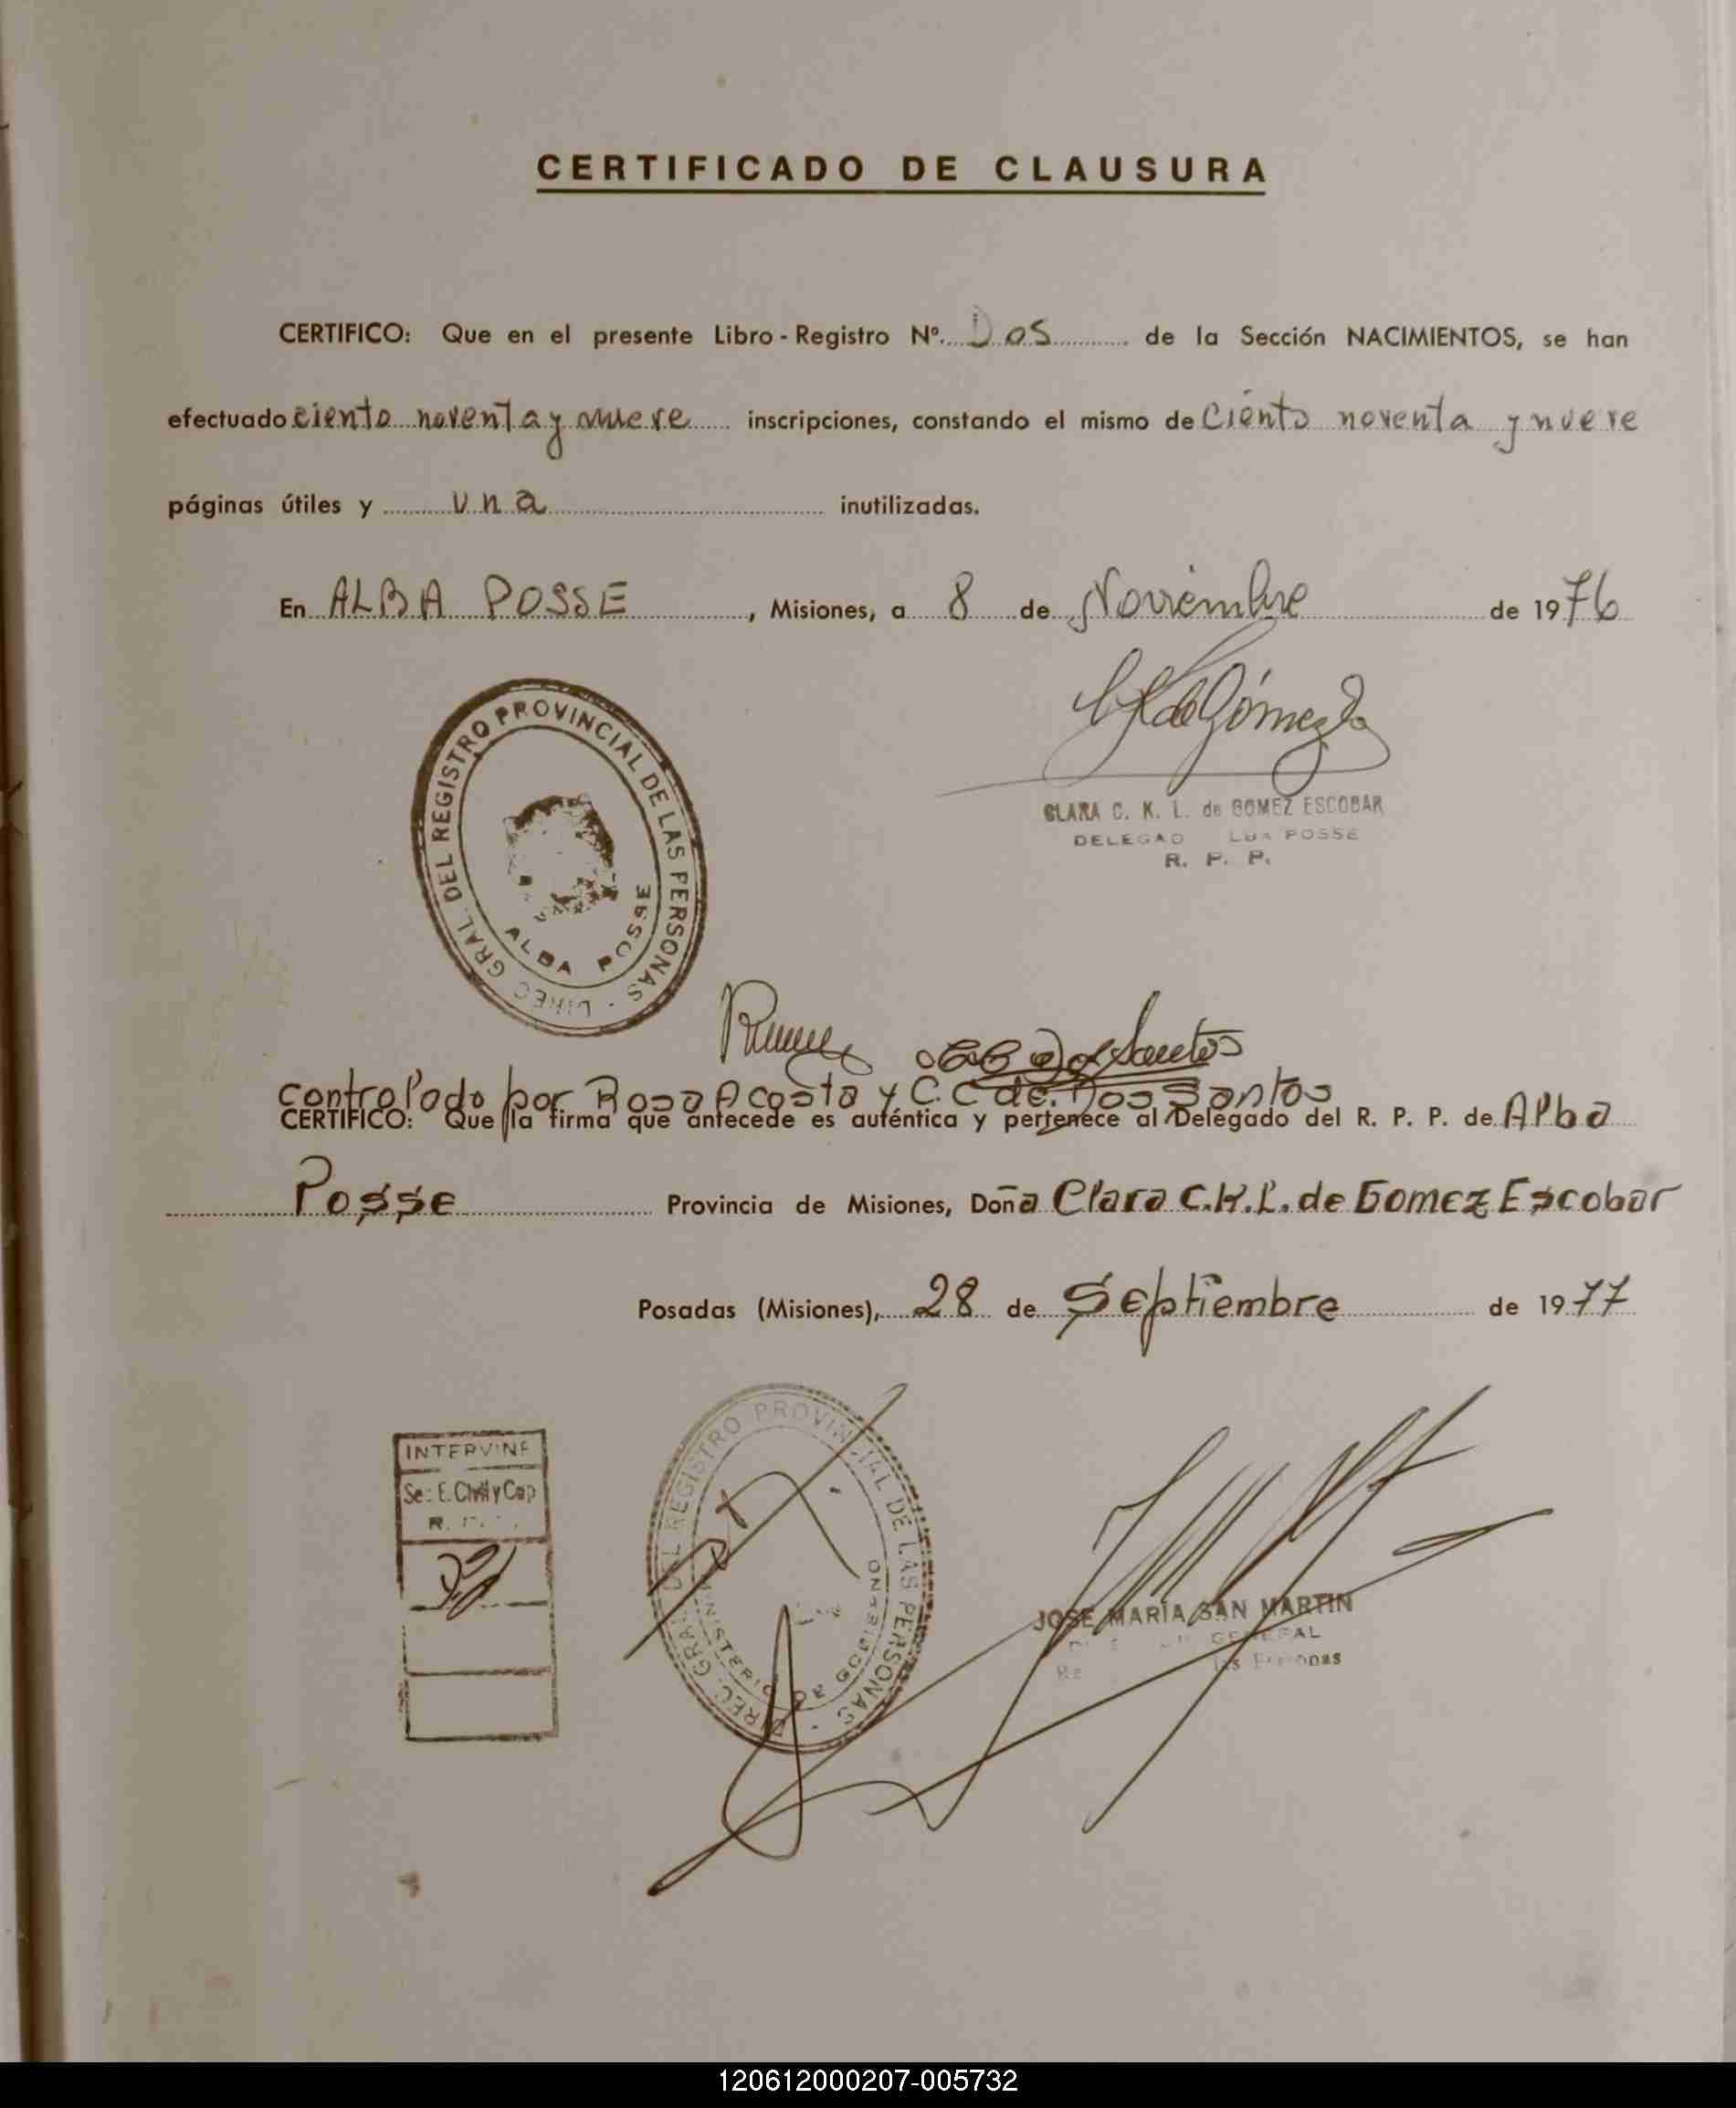 CERTIFICADO DE CLAUSURA
CERTIFICO: Que en el presente Libro-Registro Nº. Dos de la Sección NACIMIENTOS, se han
efectuado ciento noventa y nueve inscripciones, constando el mismo de Ciento noventa y nueve
páginas útiles y una inutilizadas.
En ALBA POSSE, Misiones, a 8 de Noviembre de 1976
DIREC. GRAL. DEL REGISTRO PROVINCIAL DE LAS PERSONAS -
ALBA POSSE
CLARA C. K. L. de GOMEZ ESCOBAR
DELEGAD POSSE
R. P. P.
Controlado por Rosa Acosta y C. C. de. Dos Santos
CERTIFICO: Que la firma que antecede es auténtica y pertenece al Delegado del R. P. P. de Alba
Posse Provincia de Misiones, Doña Clara C.K.L. de Gomez Escobar
Posadas (Misiones), 28 de Septiembre de 1977
INTERVINE
Sec. E. Civil y Cap
R.
DIREC. GRAL. DEL REGISTRO PROVINCIAL DE LAS PERSONAS -
MINISTERIO DE GOBIERNO
JOSE MARIA SAN MARTIN
GENERAL
las Personas
120612000207-005732